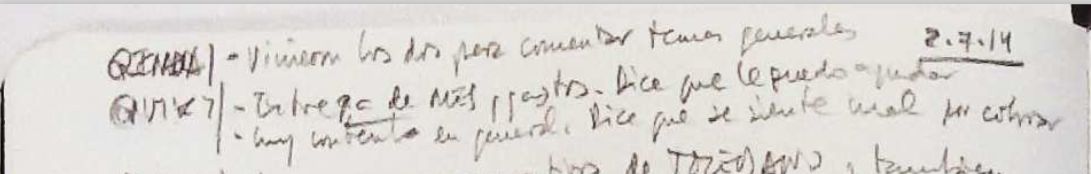 - Vinieron los dos para comentar temas generales 2.7.14
- Entrega de mis gastos. Dice que le puedo ayudar
- Muy contento en general. Dice que se siente mal por cobrar
de TOLEDANO, también